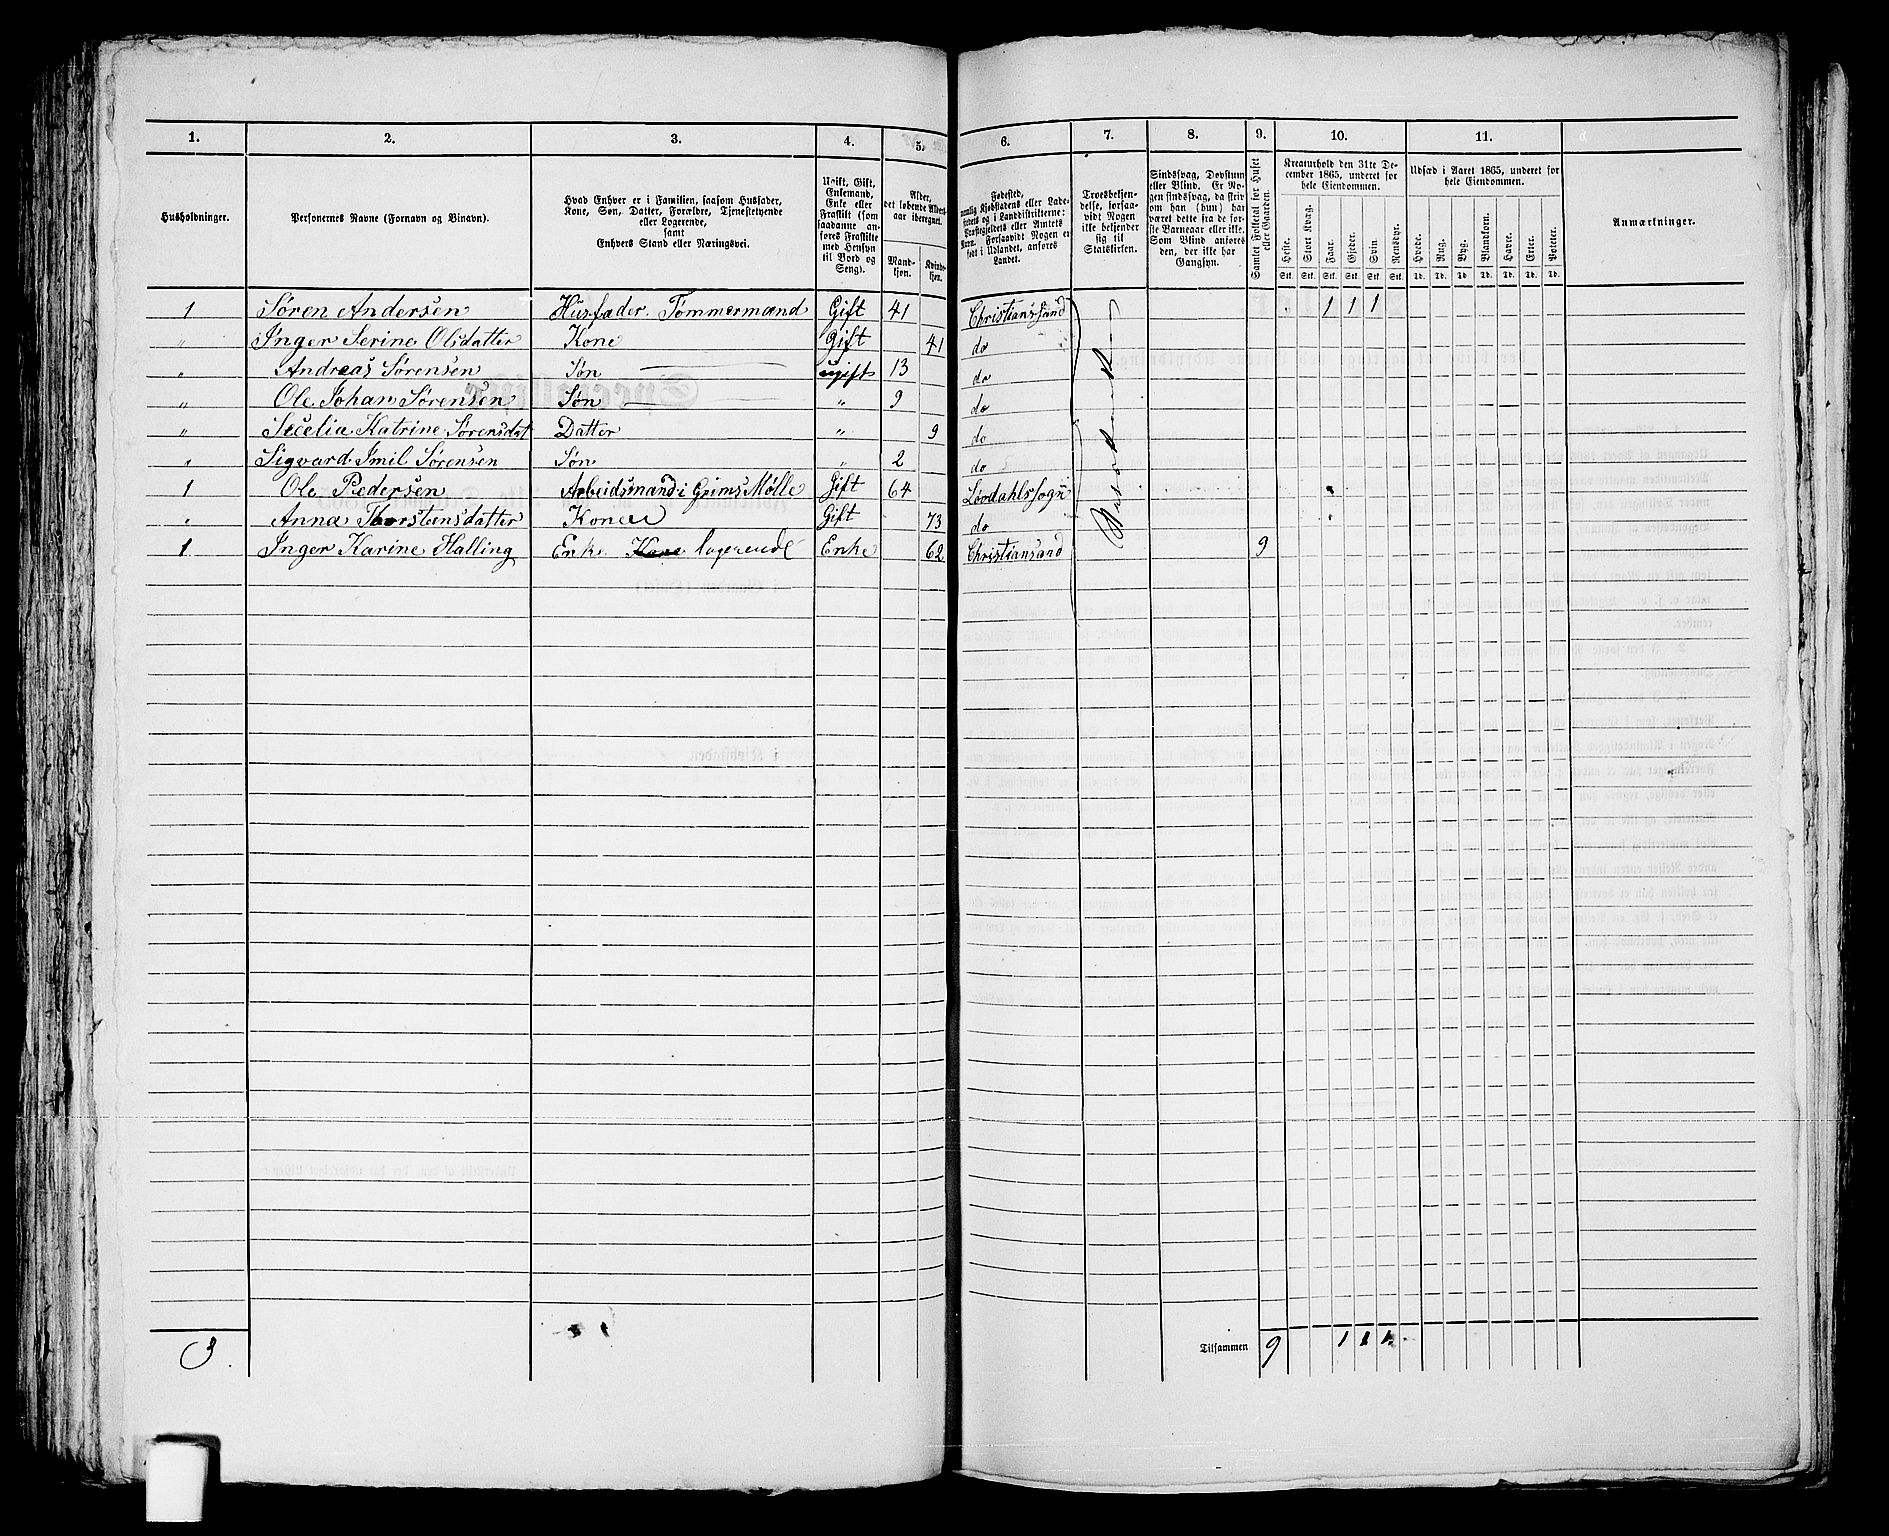 1. 2. 3. 4. 5. 6. 7. 8. 9. 10. 11.
Husholdninger.
Personernes Navne (Fornavn og Binavn).
Hvad Enhver er i Familien, saasom Husfader,
Kone, Søn, Datter, Forældre, Tjenestetyende
eller Logerende,
samt
Enhvers Stand eller Næringsvei.
Ugift, Gift,
Enkemand,
Enke eller
Fraskilt (som
saadanne an-
føres Fraskilte
med Hensyn
til Bord og
Seng).
Alder,
det løbende Alders-
aar iberegnet.
Mand-
kjøn.
Kvinde-
kjøn.
Fødested,
Landet.
Troesbekjen-
delse, forsaa-
vidt Nogen
ikke bekjender
sig til
Statskirken.
Sindssvag, Døvstum
eller Blind. Er No-
gen sindssvag, da skriv
om han (hun) har
været dette fra de før-
ste Barneaar eller ikke.
Som Blind anføres
den, der ikke har
Gangsyn.
Samlet Folketal for Huset
eller Gaarden.
Kreaturhold den 31te De-
cember 1865, underet for
hele Eiendommen.
Heste. Stort Kvæg. Faar. Gjeder. Svin. Rensdyr.
Stk. Stk. Stk. Stk. Stk. Stk.
Udsæd i Aaret 1865, underet for
hele Eiendommen.
Hvede. Rug. Byg. Blandkorn. Havre. Erter. Poteter.
Td. Td. Td. Td. Td. Td. Td.
Anmærkninger.
1 Søren Andersen Husfader Tømmermand Gift 41 Christianssand 1 1 1
" Inger Serine Olsdatter Kone Gift 41 do
" Andreas Sørensen Søn ugift 13 do
" Ole Johan Sørensen Søn " 9 do
" Secelia Katrine Sørensdat Datter " 9 do
" Sigvard Imil Sørensen Søn " 2 do
1 Ole Pedersen Arbeidsmand i Grims Mølle Gift 64
" Anna Thorstensdatter Kone Gift 73 do
1 Inger Karine Halling Enke Kone logerende Enke 62 Christiansand 9
3 Tilsammen 9 1 1 1